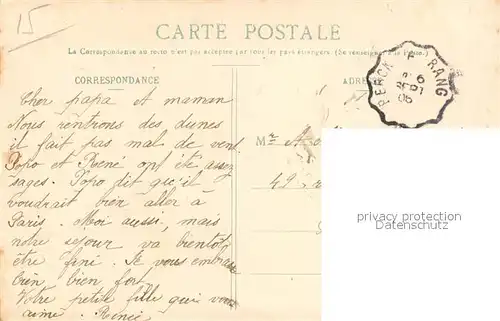 15
CARTE POSTALE
La Correspondance au recto n'est pas acceptée par tous les pays étrangers. (Se renseigner à la Poste)
CORRESPONDANCE
ADRE
RANG
6
06
Cher papa et maman
Nous rentrons des dunes
il fait pas mal de vent
Popo et René ont été assez
sages. Popo dit qu'il
voudrait bien aller à
Paris. Moi aussi, mais
notre séjour va bientôt
être fini. Je vous embrasse
bien, bien fort
Votre petite fille qui vous
aime. Renée
Mr A
49
privacy protection
Datenschutz